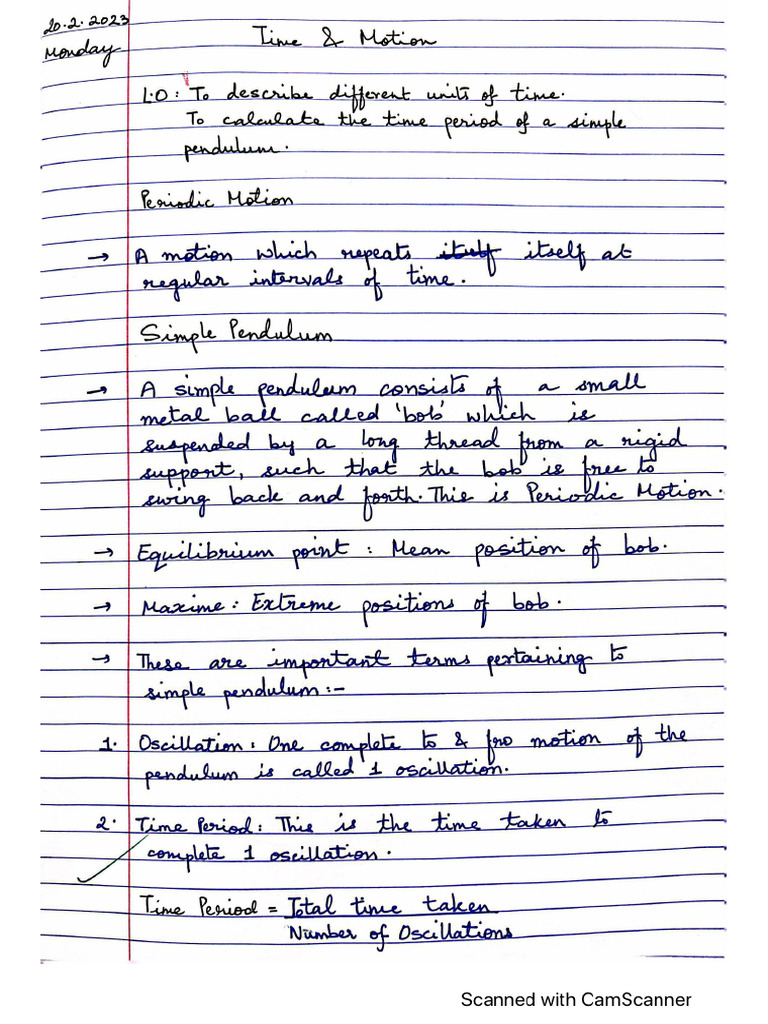 20.2.2023
Monday
Time & Motion
L.O: To describe different units of time.
To calculate the time period of a simple
pendulum.
Periodic Motion
→ A motion which repeats itself itself at
regular intervals of time.
Simple Pendulum
→ A simple pendulum consists of a small
metal ball called 'bob' which is
suspended by a long thread from a rigid
support, such that the bob is free to
swing back and forth. This is Periodic Motion.
→ Equilibrium point : Mean position of bob.
→ Maxime : Extreme positions of bob.
→ These are important terms pertaining to
simple pendulum :-
1. Oscillation : One complete to & fro motion of the
pendulum is called 1 oscillation.
2. Time Period : This is the time taken to
complete 1 oscillation.
Time Period = Total time taken
Number of Oscillations
Scanned with CamScanner